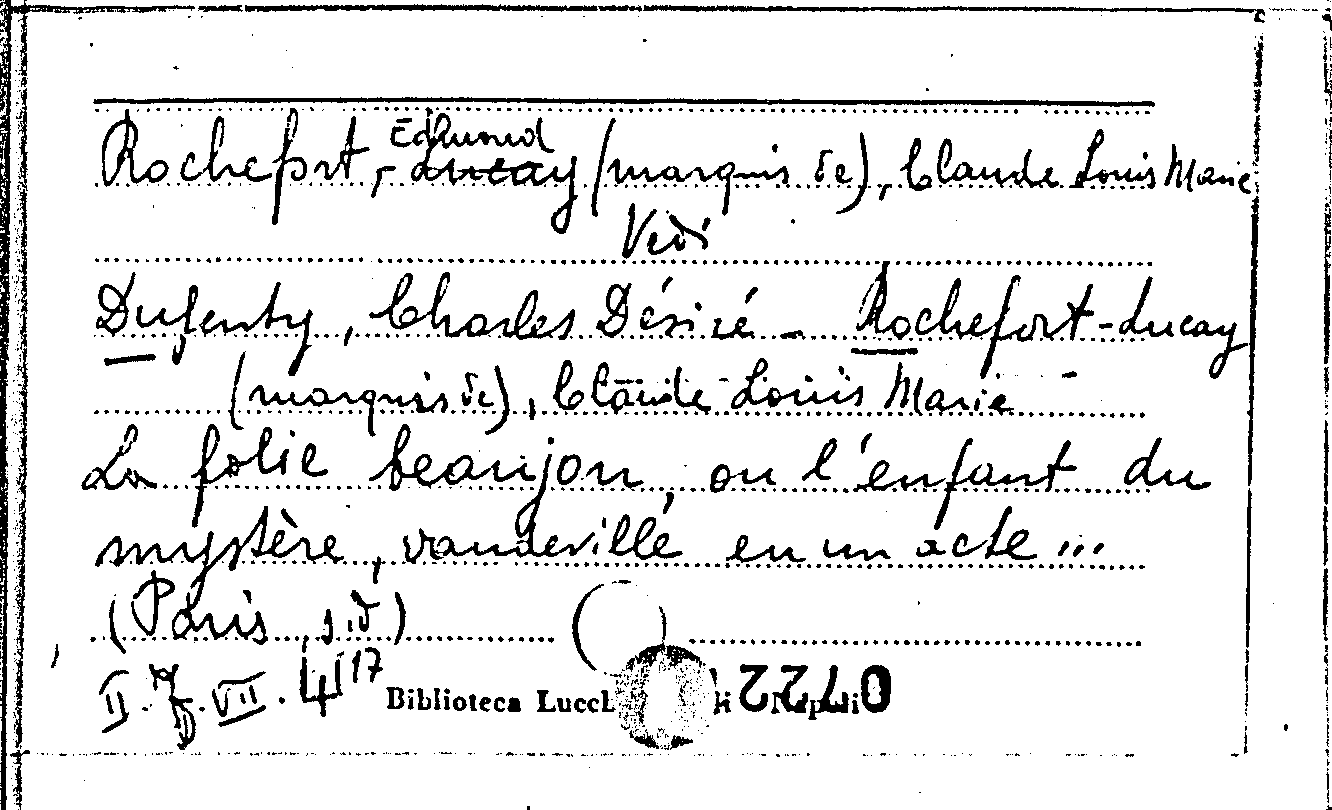 Edmond
Rochefort, - Lucay (marquis de), Claude Louis Marie
Vedi
Dupeuty, Charles Désiré - Rochefort-Lucay
(marquis de), Claude Louis Marie
La folie beaujon, ou l'enfant du
mystère, vaudeville en un acte...
(Paris, s.d)
II. . VII. 4 17
Biblioteca